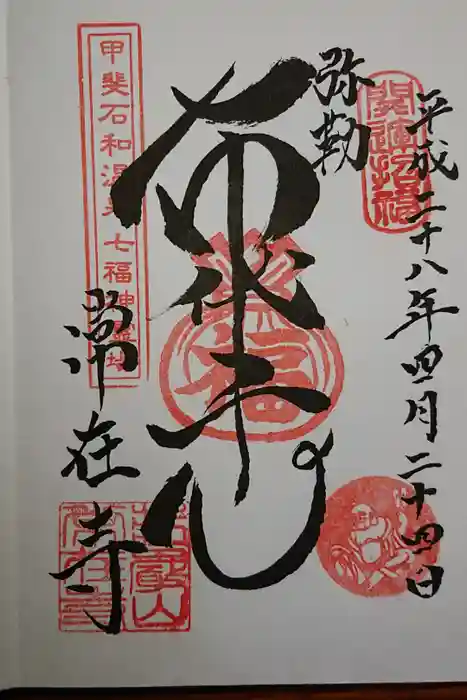 開運招福
平成二十八年四月二十四日
弥勒
布袋尊
福
甲斐石和温泉七福神霊場
常在寺